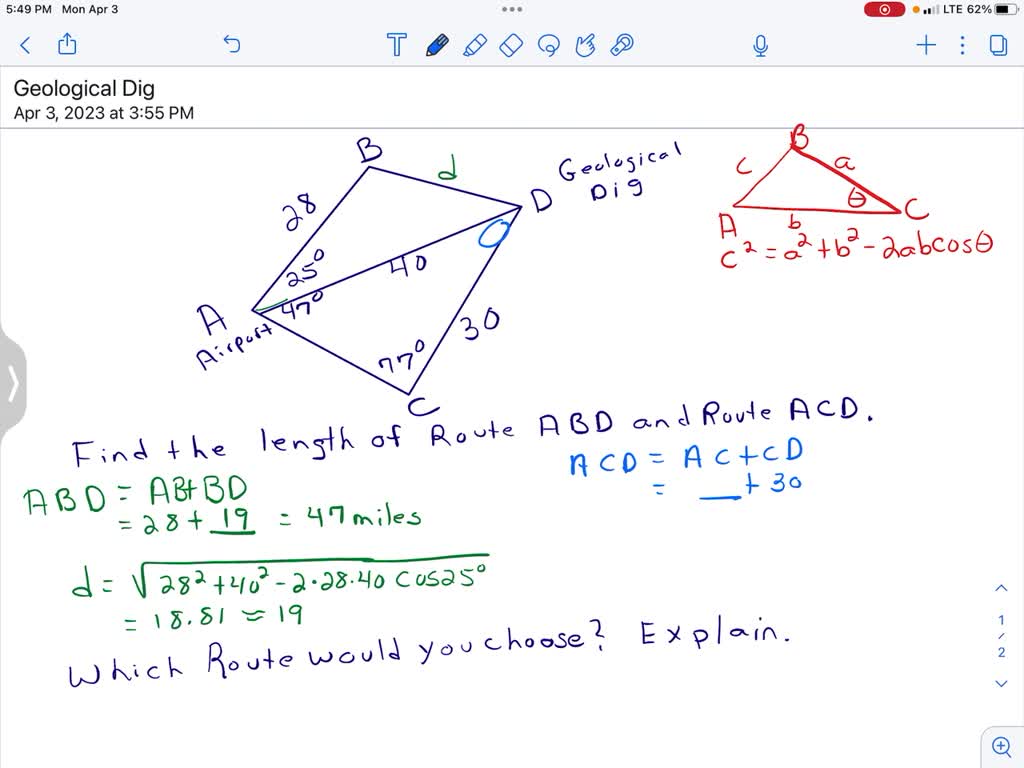 5:49 PM Mon Apr 3
LTE 62%
T
Geological Dig
Apr 3, 2023 at 3:55 PM
B
d
Geological
Dig
D
28
25°
40
47°
A
Airport
77°
30
C
B
c
a
θ
A
b
C
c² = a² + b² - 2abcosθ
Find the length of Route ABD and Route ACD.
ABD = AB+BD
= 28 + 19 = 47 miles
ACD = AC + CD
= __ + 30
d = √28² + 40² - 2·28·40 cos25°
= 18.81 ≈ 19
Which Route would you choose? Explain.
1
/
2